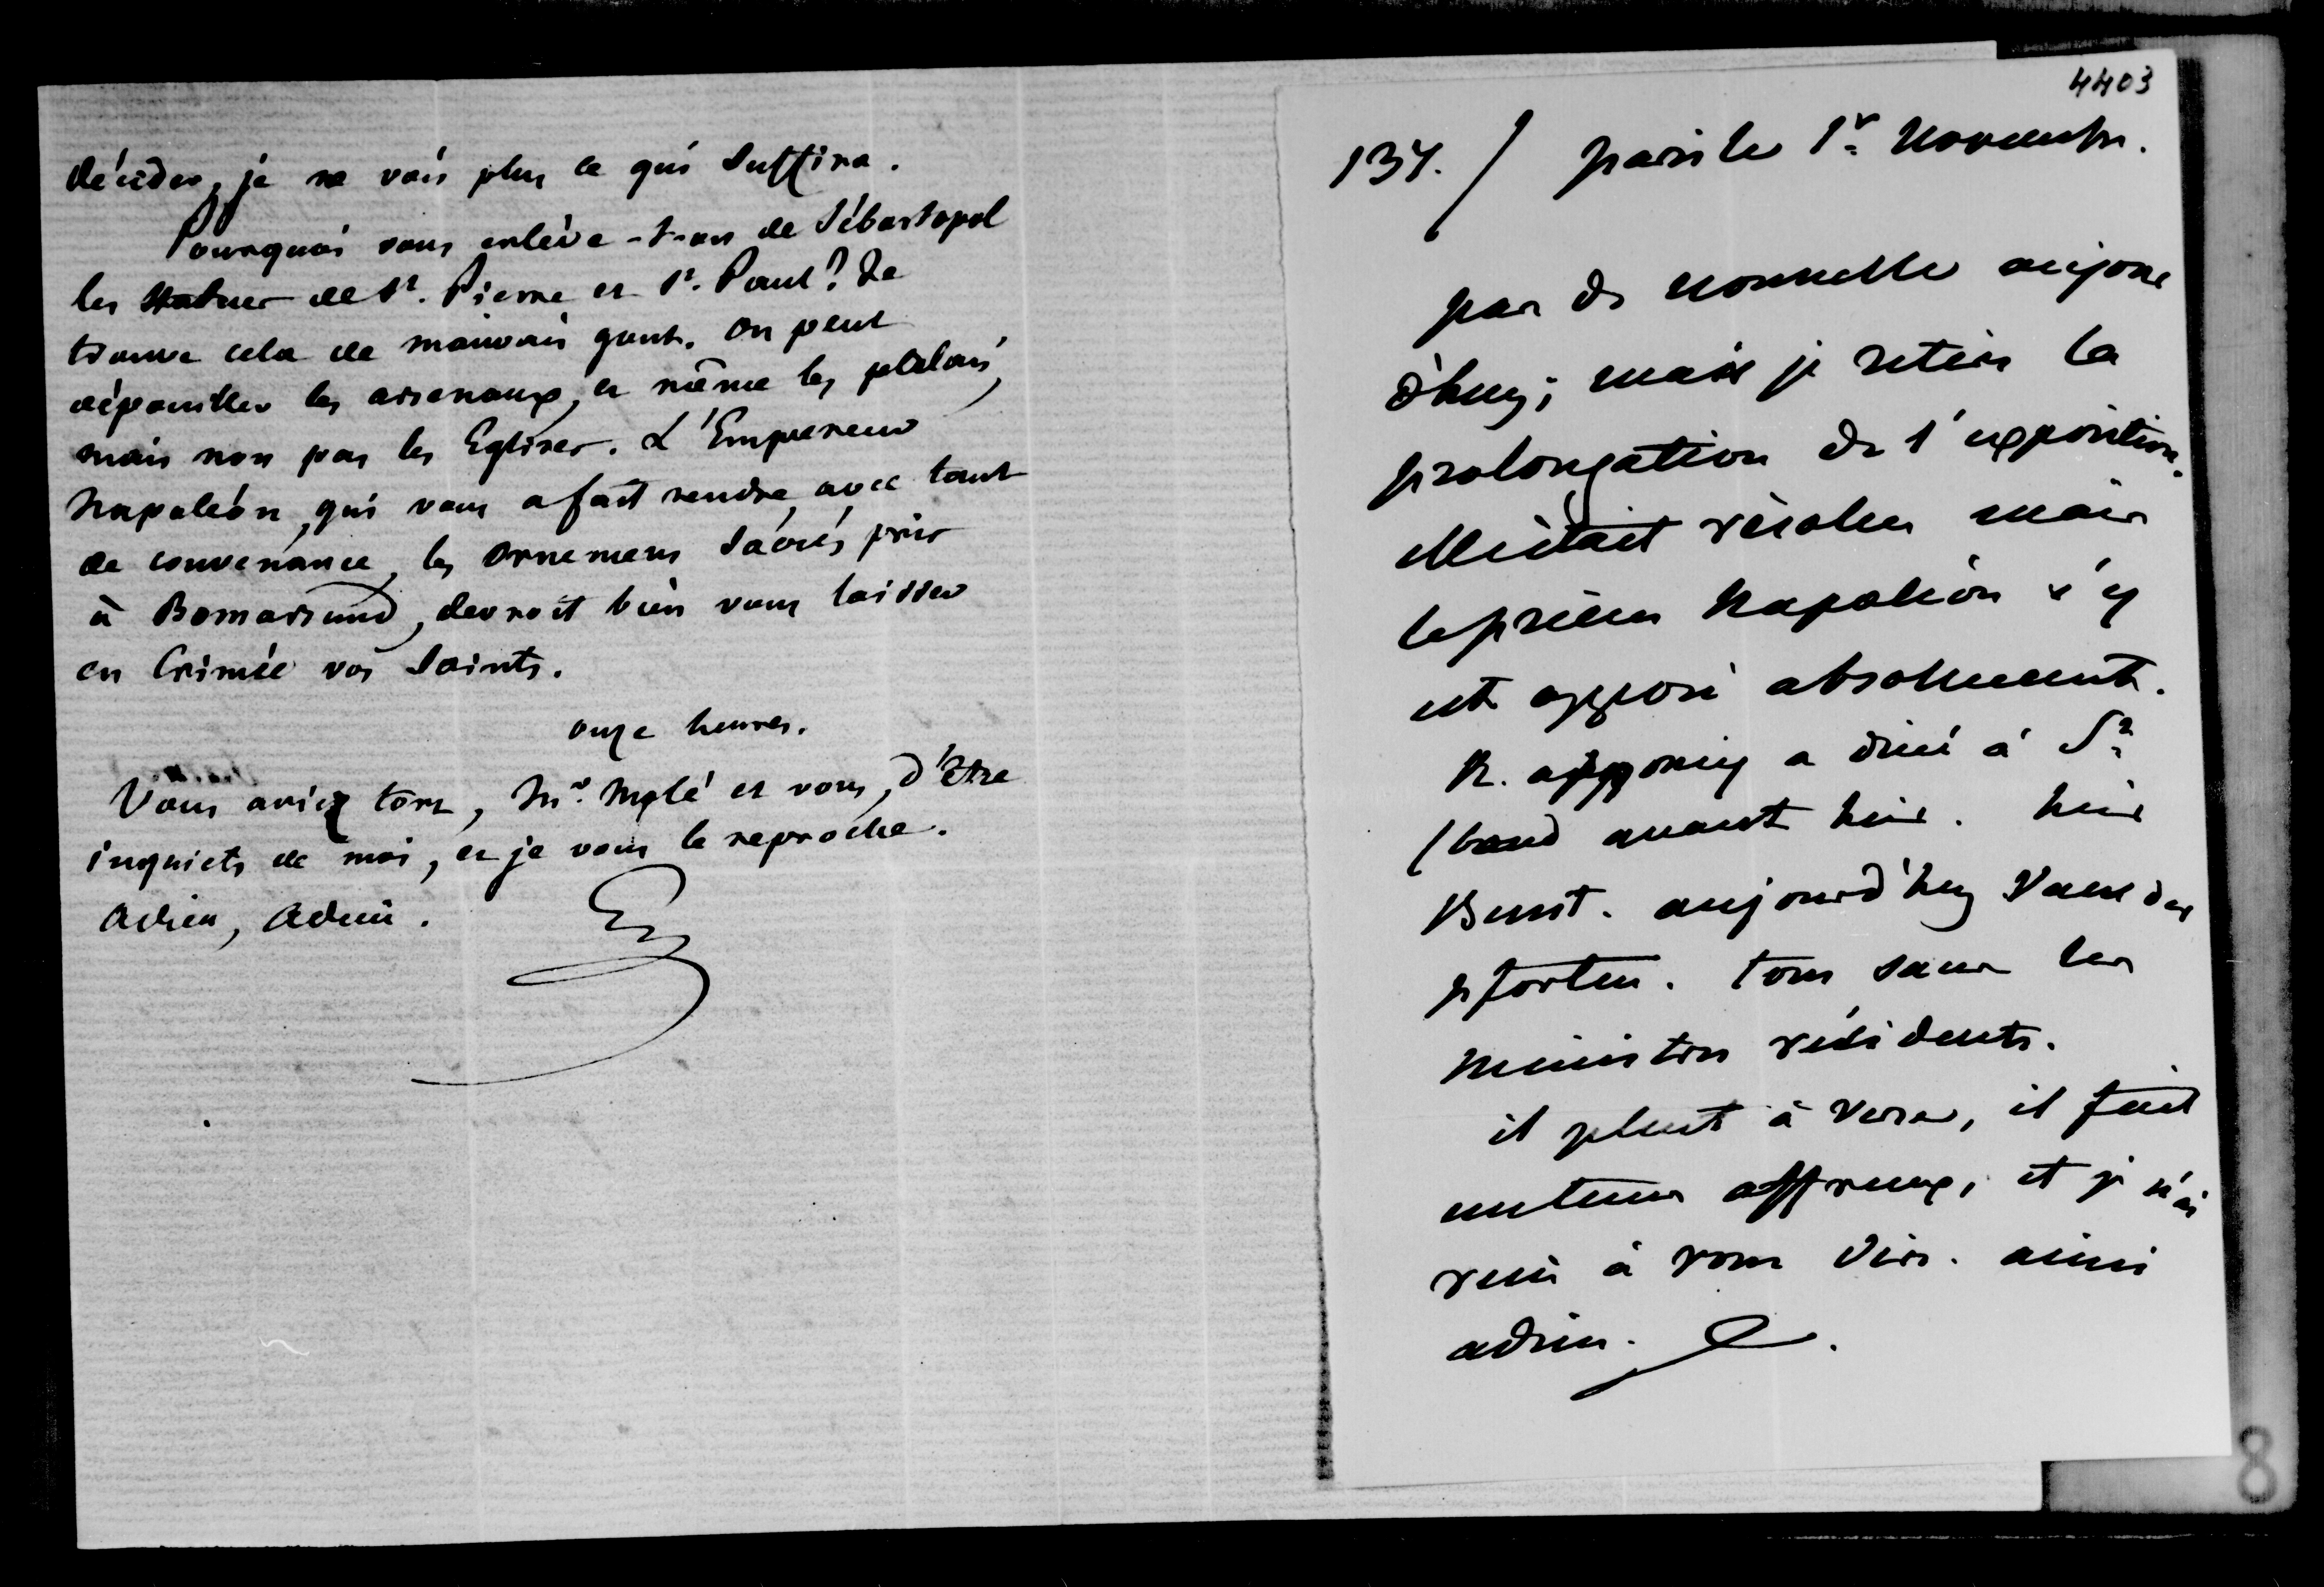 décider, je ne vois plus ce qui suffira.
Pourquoi vous enlève-t-on de Sébastopol
les statues de St. Pierre et St. Paul ? Je
trouve cela de mauvais gout. On peut
dépouiller les arsenaux, et même les palais,
mais non pas les Eglises. L'Empereur
Napoléon, qui vous a fait rendre, avec tant
de convenance, les ornemens sacrés pris
à Bomarsund, devroit bien vous laisser
en Crimée vos Saints.
onze heures.
Vous aviez tort, Mr. Molé et vous, d'être
inquiets de moi, et je vous le reproche.
Adieu, adieu.
G
4403
137. / paris le 1r novembre.
pas de nouvelle aujour
d'huy; mais je retire la
prolongation de l'exposition.
elle était résolue mais
le prince Napoléon s'y
est opposé absolument.
R. appony a diné à St
Cloud avant hier. hier
Beust. aujourd'huy Vander
pforten. tous sans les
ministres résidents.
il pleut à verse, il fait
un tems affreux, et je n'ai
rien à vous dire. ainsi
adieu.
8